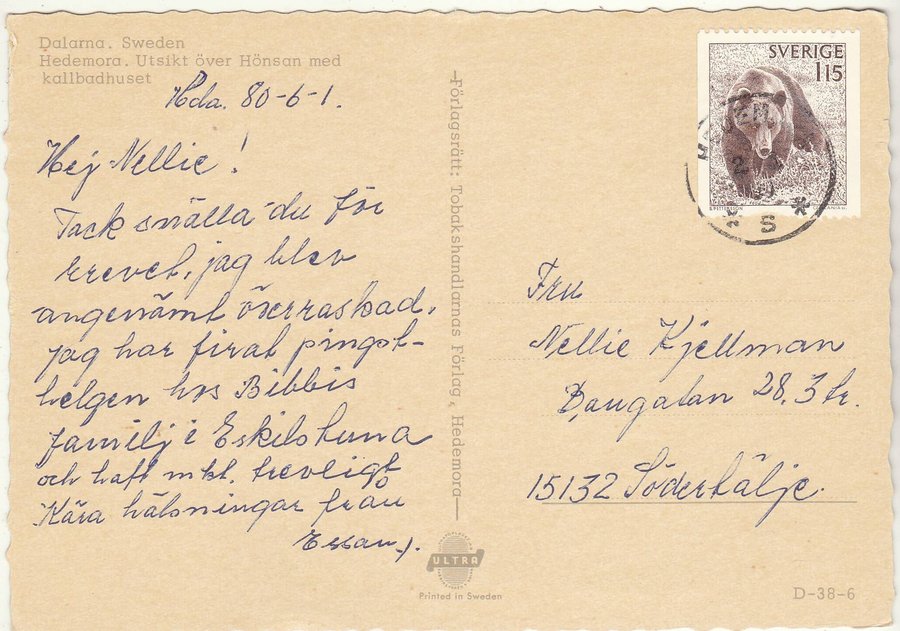 Dalarna. Sweden
Hedemora. Utsikt över Hönsan med
kallbadhuset
Hda. 80-6-1.
Hej Nellie!
Tack snälla du för
brevet, jag blev
angenämt överraskad.
Jag har firat pingst-
helgen hos Bibbis
familj i Eskilstuna
och haft mkt. trevligt
Kära hälsningar från
Förlagsrätt: Tobakshandlarnas Förlag, Hedemora
ULTRA
Printed in Sweden
SVERIGE
115
S
Fru
Nellie Kjellman
28, 3 tr.
15132 Södertälje.
D-38-6